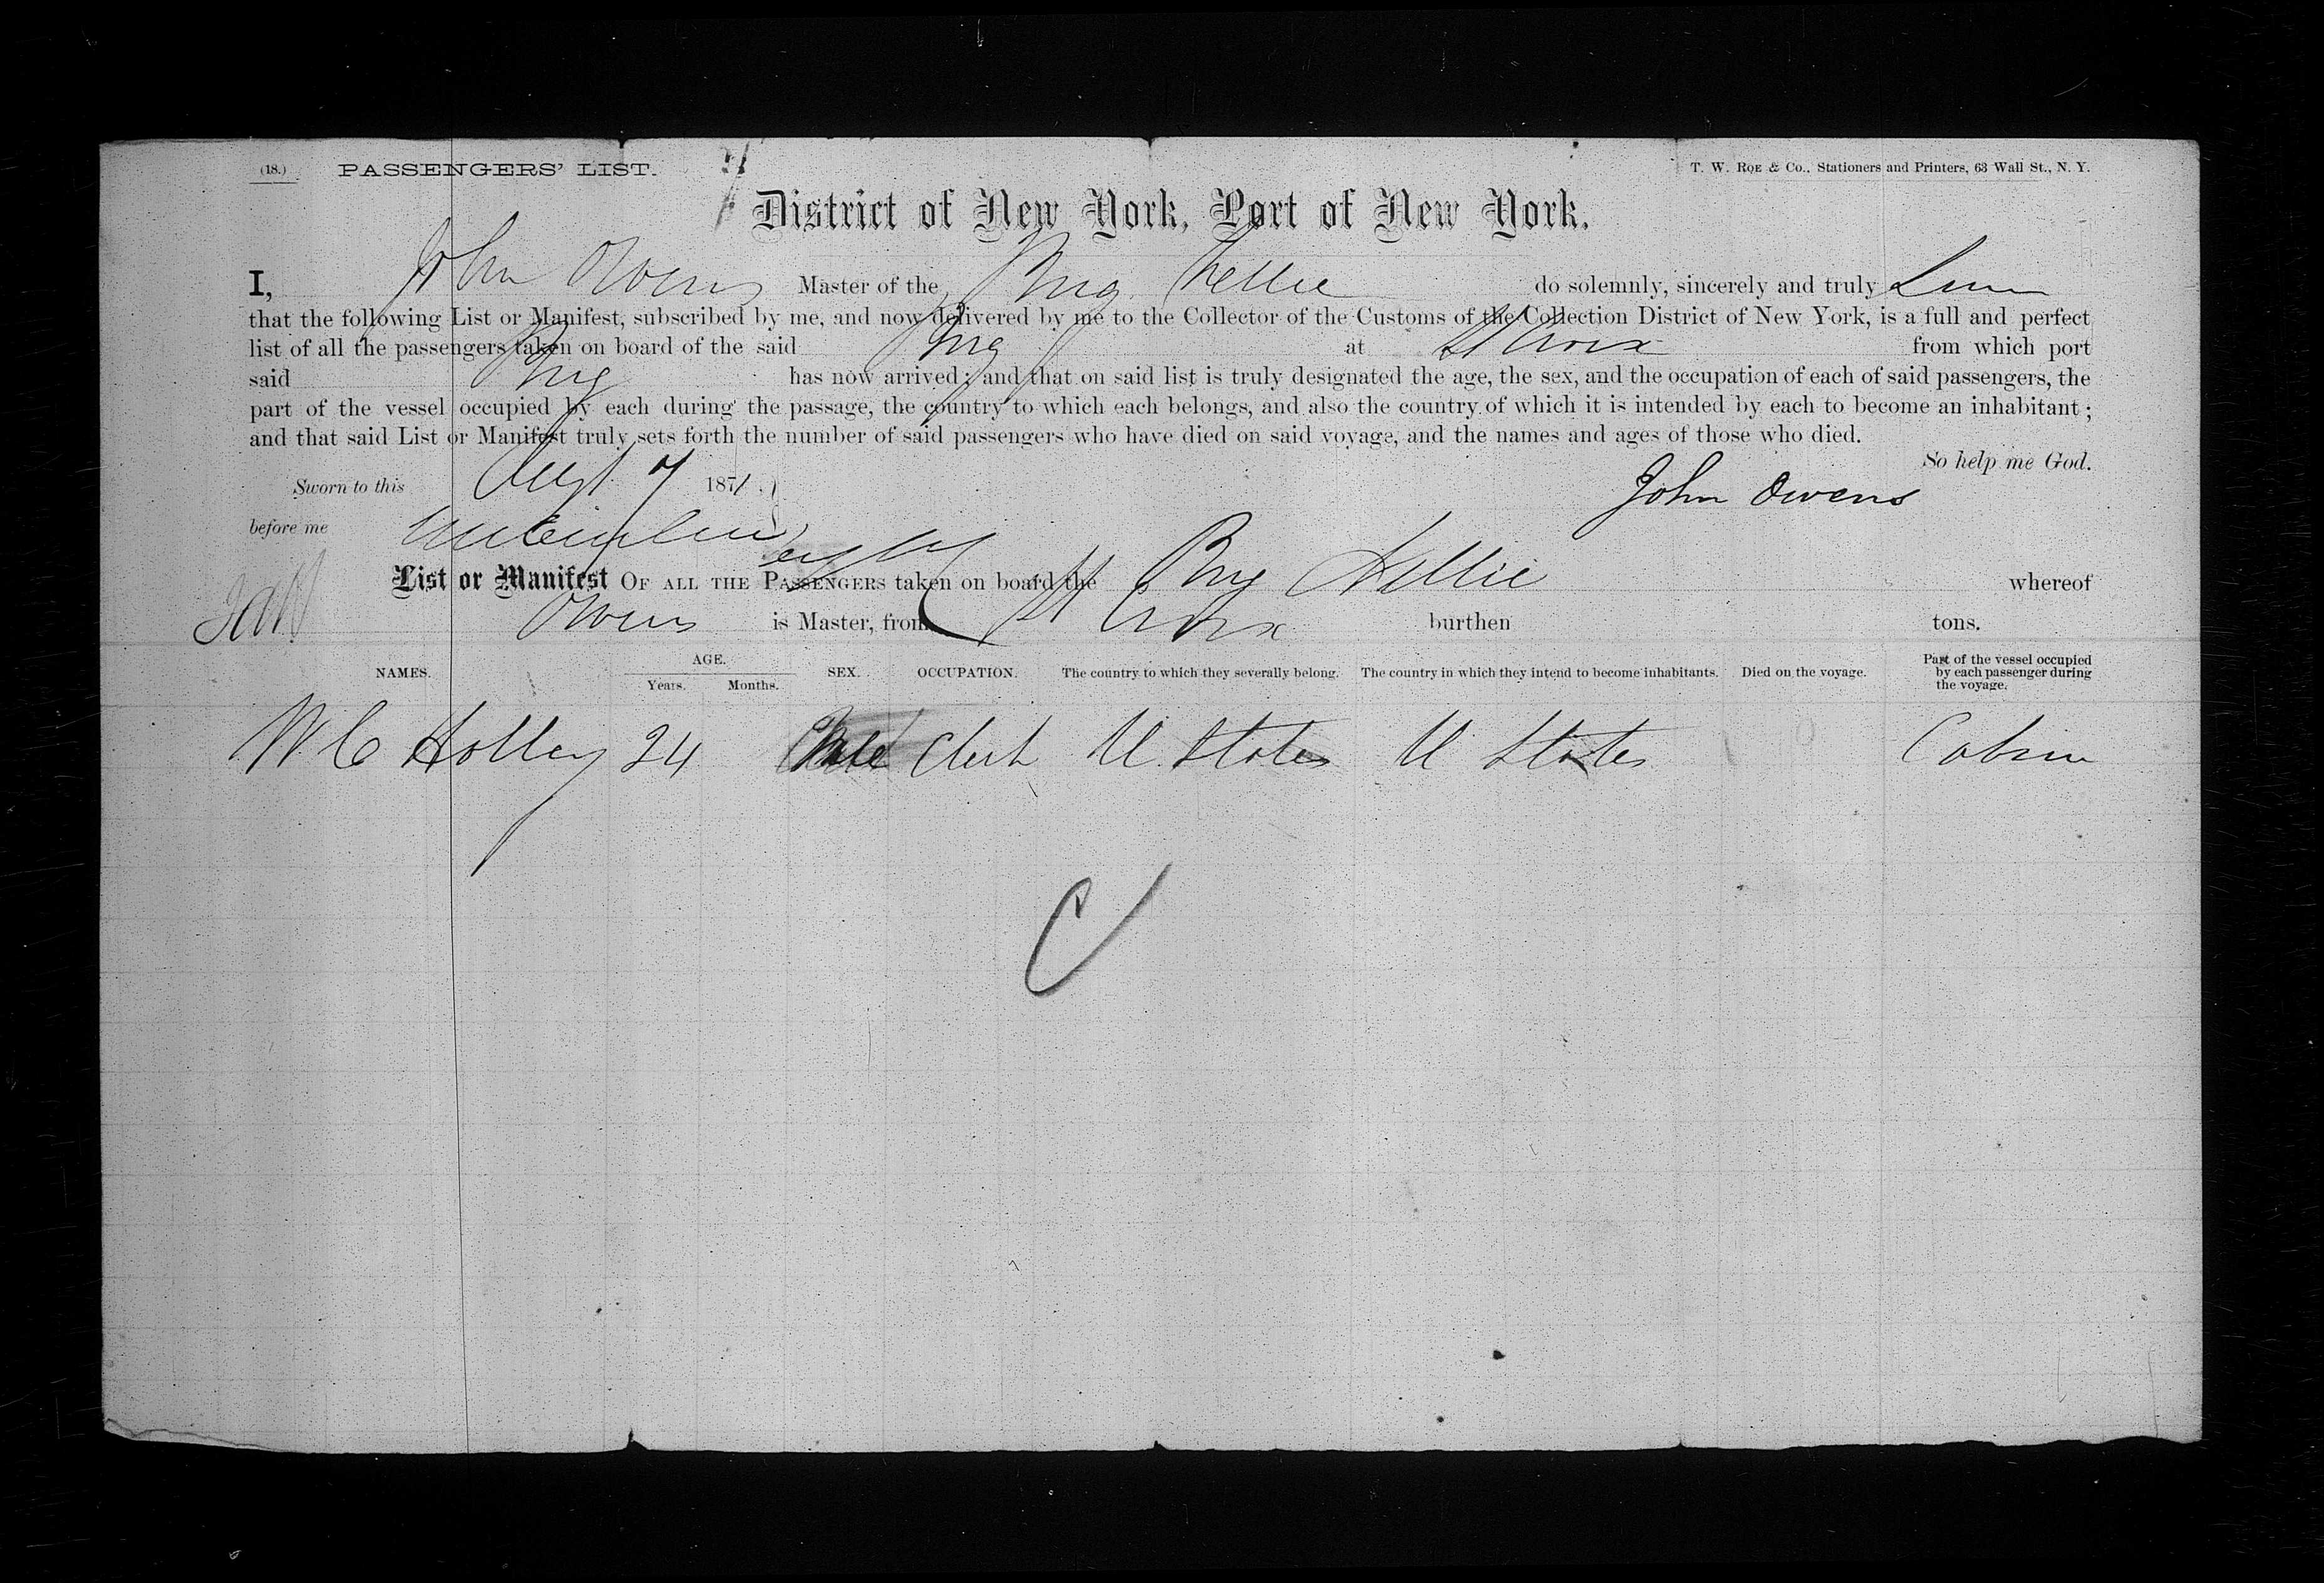 (18.) PASSENGERS' LIST. T. W. ROE & Co., Stationers and Printers, 63 Wall St., N. Y.
District of New York, Port of New York.
I, John Owens Master of the Brig Nellie do solemnly, sincerely and truly
that the following List or Manifest, subscribed by me, and now delivered by me to the Collector of the Customs of the Collection District of New York, is a full and perfect
list of all the passengers taken on board of the said Brig at St Croix from which port
said Brig has now arrived; and that on said list is truly designated the age, the sex, and the occupation of each of said passengers, the
part of the vessel occupied by each during the passage, the country to which each belongs, and also the country of which it is intended by each to become an inhabitant;
and that said List or Manifest truly sets forth the number of said passengers who have died on said voyage, and the names and ages of those who died.
So help me God.
Sworn to this Augt 7 1871 John Owens
before me
List or Manifest OF ALL THE PASSENGERS taken on board the Brig Nellie whereof
Owens is Master, from St Croix burthen tons.
NAMES. AGE. Years. Months. SEX. OCCUPATION. The country to which they severally belong. The country in which they intend to become inhabitants. Died on the voyage. Part of the vessel occupied by each passenger during the voyage.
W. C Holley 24 Male Clerk U. States U States Cabin
C